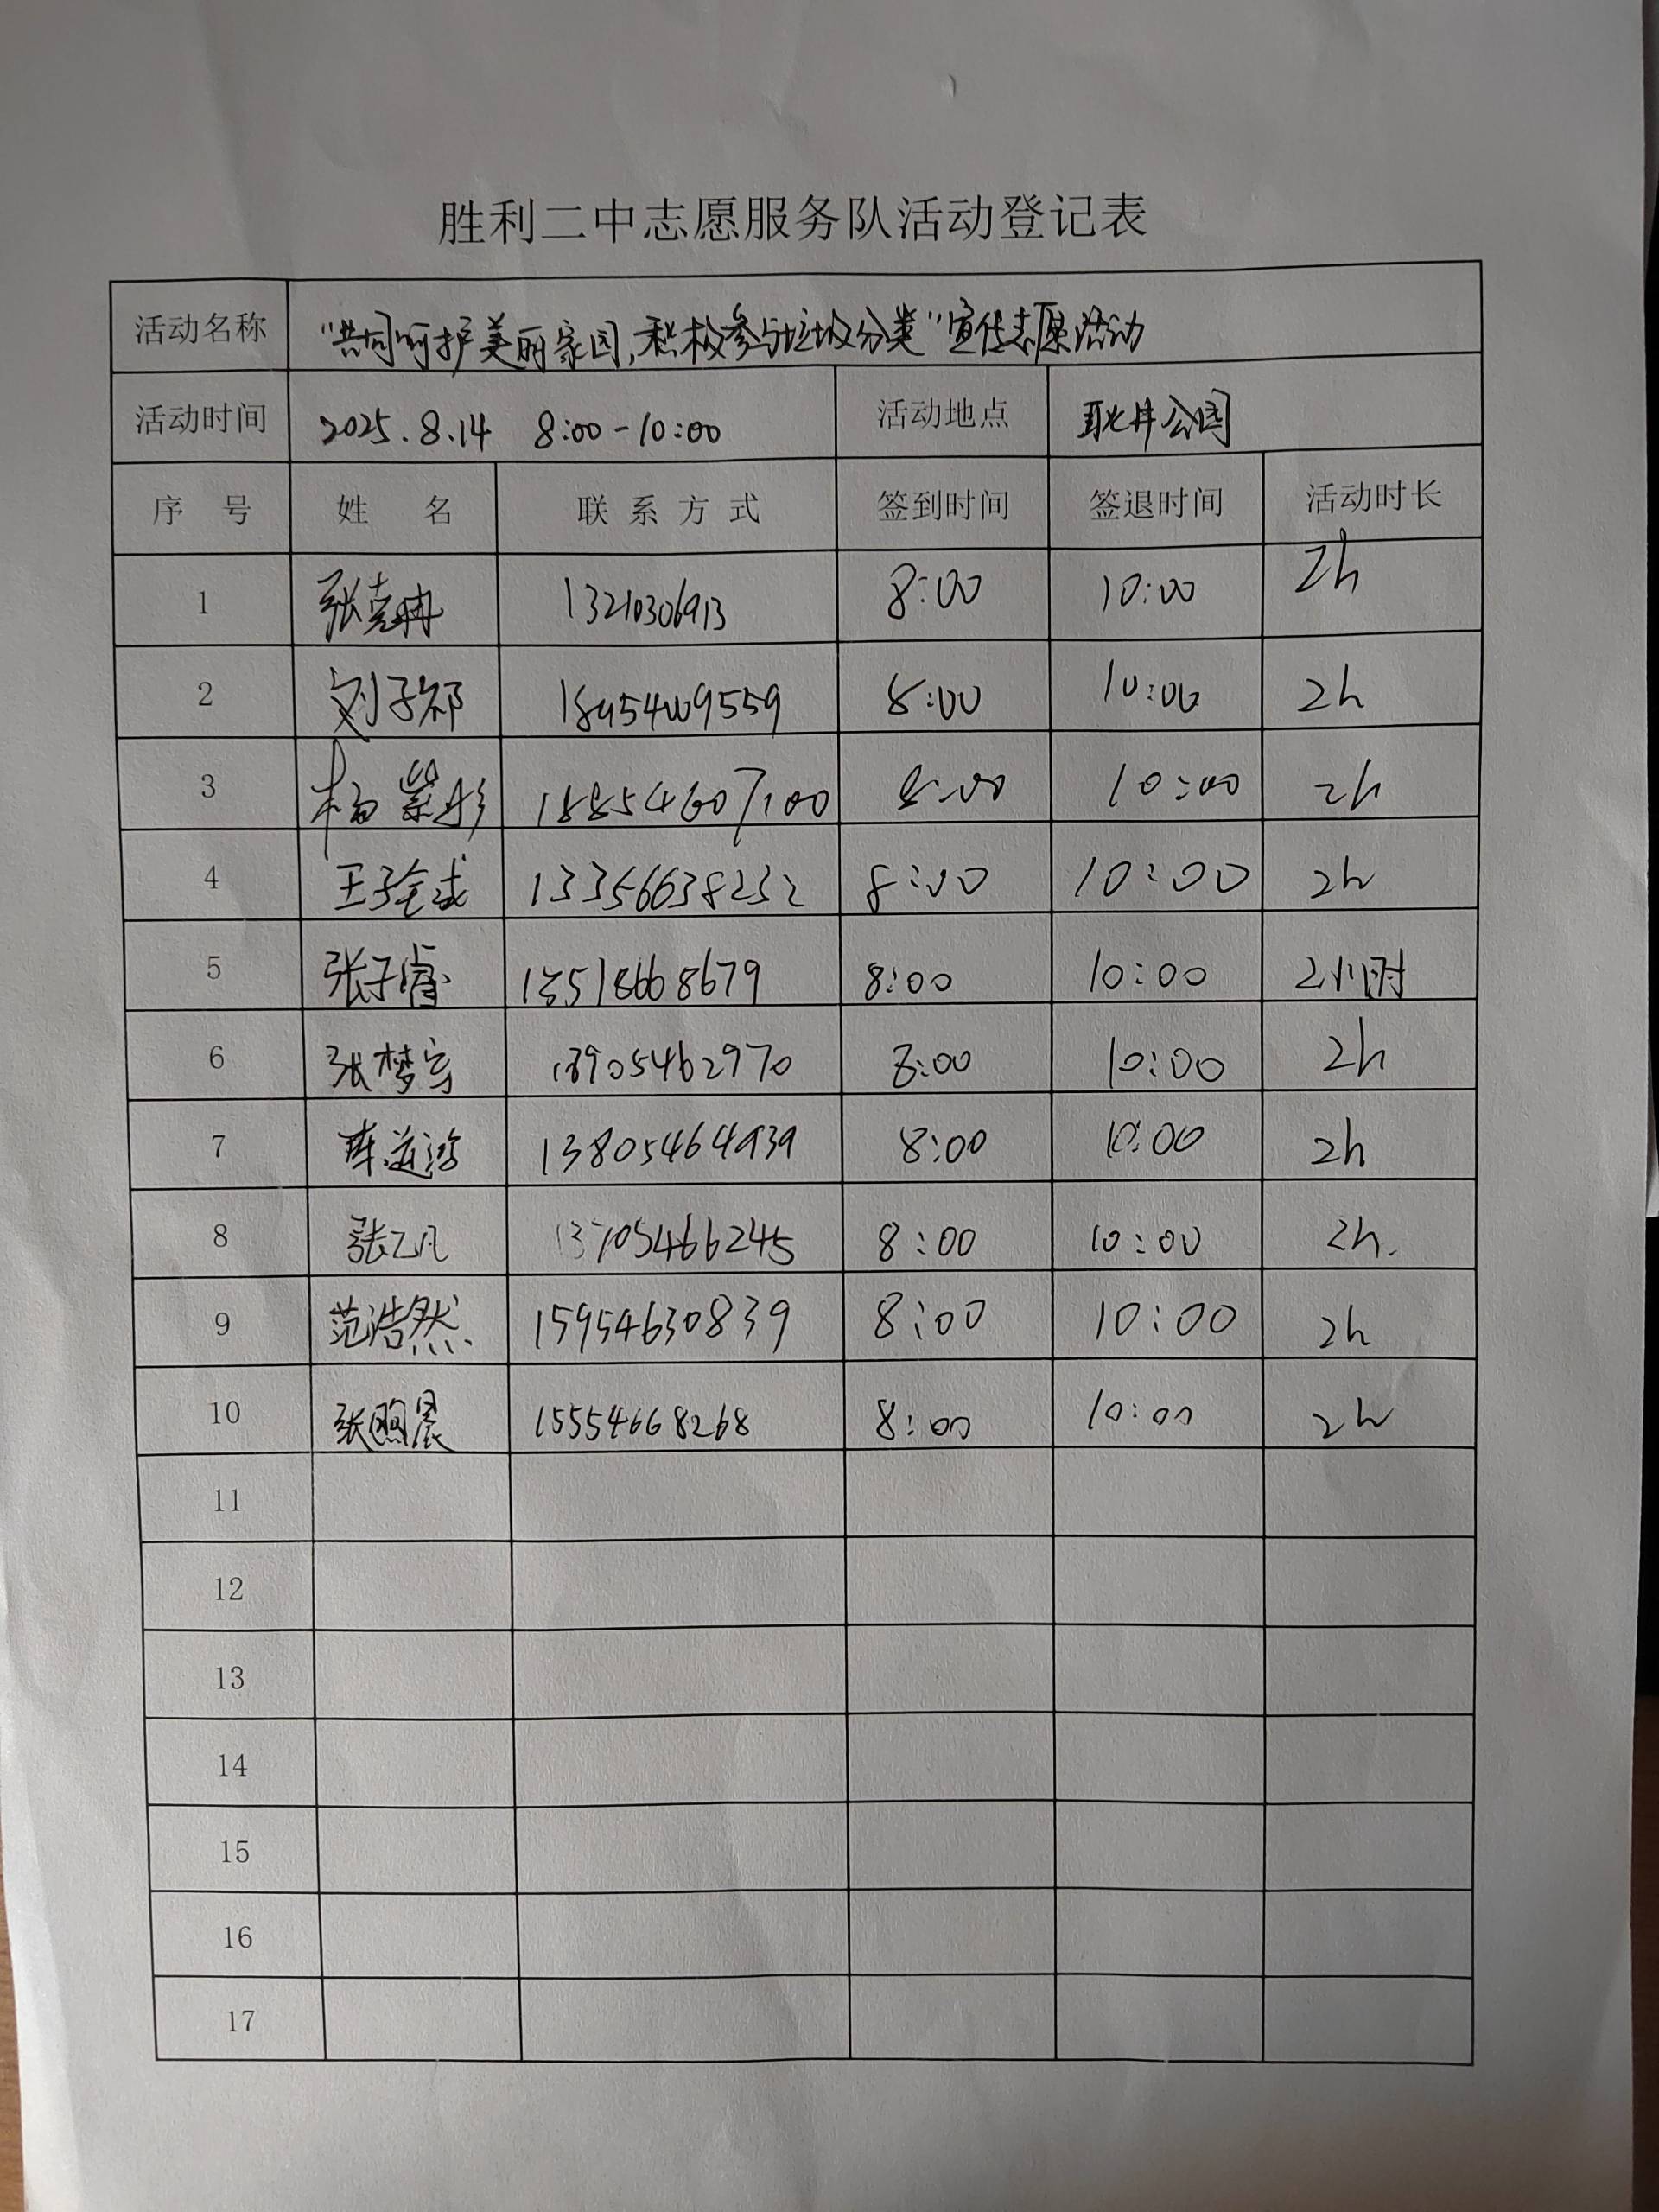 胜利二中志愿服务队活动登记表
活动名称 “共同呵护美丽家园,积极参与垃圾分类”宣传志愿活动
活动时间 2025.8.14 8:00-10:00 活动地点 耿井公园
序 号 姓 名 联 系 方 式 签到时间 签退时间 活动时长
1 张克冉 13210306913 8:00 10:00 2h
2 刘子祁 8:00 10:00 2h
3 杨紫彤 8:00 10:00 2h
4 13356638232 8:00 10:00 2h
5 张子睿 8:00 10:00 2小时
6 张梦宇 13905462970 8:00 10:00 2h
7 13805464939 8:00 10:00 2h
8 张乙凡 13705466245 8:00 10:00 2h.
9 范浩然 15954630839 8:00 10:00 2h
10 张煦晨 15554668268 8:00 10:00 2h
11
12
13
14
15
16
17